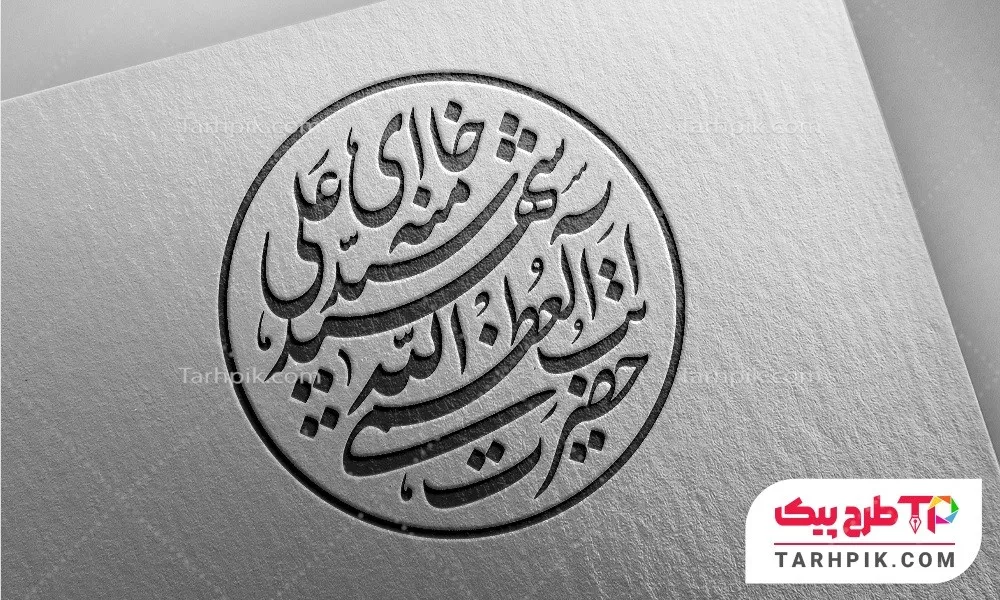 حضرت آیت الله العظمی شهید سید علی خامنه ای
Tarhpik.com
Tarhpik.com
Tarhpik.com
Tarhpik.com
طرح پیک TP
TARHPIK.COM